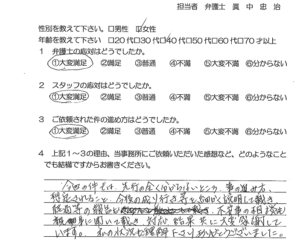 担当者 弁護士 眞中忠治
性別を教えて下さい。□男性 ☑女性
年齢を教えて下さい □20代□30代□40代□50代□60代□70才以上
1 弁護士の応対はどうでしたか。
①大変満足 ②満足 ③普通 ④不満 ⑤大変不満 ⑥分からない
2 スタッフの応対はどうでしたか。
①大変満足 ②満足 ③普通 ④不満 ⑤大変不満 ⑥分からない
3 ご依頼された件の進め方はどうでしたか。
①大変満足 ②満足 ③普通 ④不満 ⑤大変不満 ⑥分からない
4 上記1~3の理由、当事務所にご依頼いただいた感想など、どのようなこと
でも結構ですからお書きください。
今回の件では、先行の全く分からないところ、事の進め方、
今後の成り行き
報告
親身に聞いて頂き、対応、結果共に大変感謝して
います。私の状況を理解下さりありがとうございました。